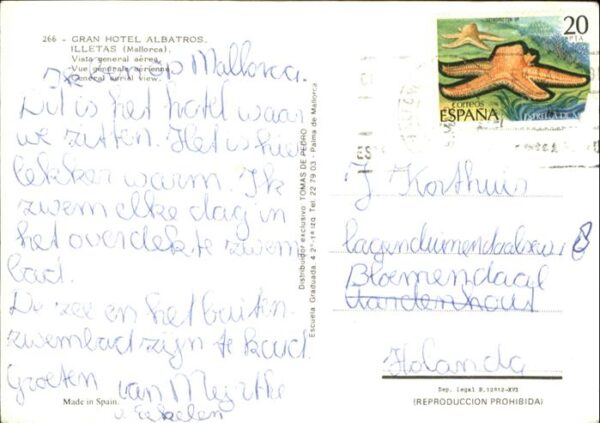 266 - GRAN HOTEL ALBATROS.
ILLETAS (Mallorca).
Vista general aérea.
Vue générale aérienne.
General aerial view.
op Mallorca.
Dit is het hotel waar
we zitten. Het is hier
lekker warm. Ik
zwem elke dag in
het overdekte zwem
bad.
De zee en het buiten
zwembad zijn te koud
Groeten van
Made in Spain.
Distribuidor exclusivo: TOMAS DE PEDRO
Escuela Graduada, 4 2º-1ª Izq. Tel. 22 79 03 - Palma de Mallorca
20
PTA
CORREOS
ESPAÑA
ESTRELLA
J Korthuis
8
Bloemendaal
Aardenhout
Holanda
Dep. legal B.
(REPRODUCCION PROHIBIDA)